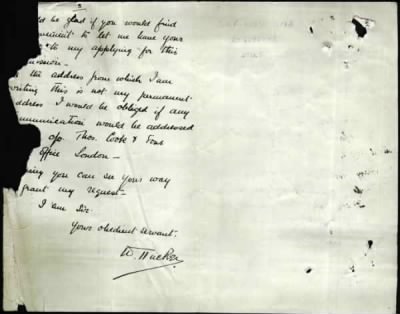 5
ld be glad if you would find
venient to let me have your
to my applying for this
mission -
the address from which I am
writing this is not my permanent
address I would be obliged if any
mmunication would be addressed
c/o. Thos. Cook & Sons
Office London -
ping you can see your way
grant my request -
I am Sir.
Yours obedient servant.